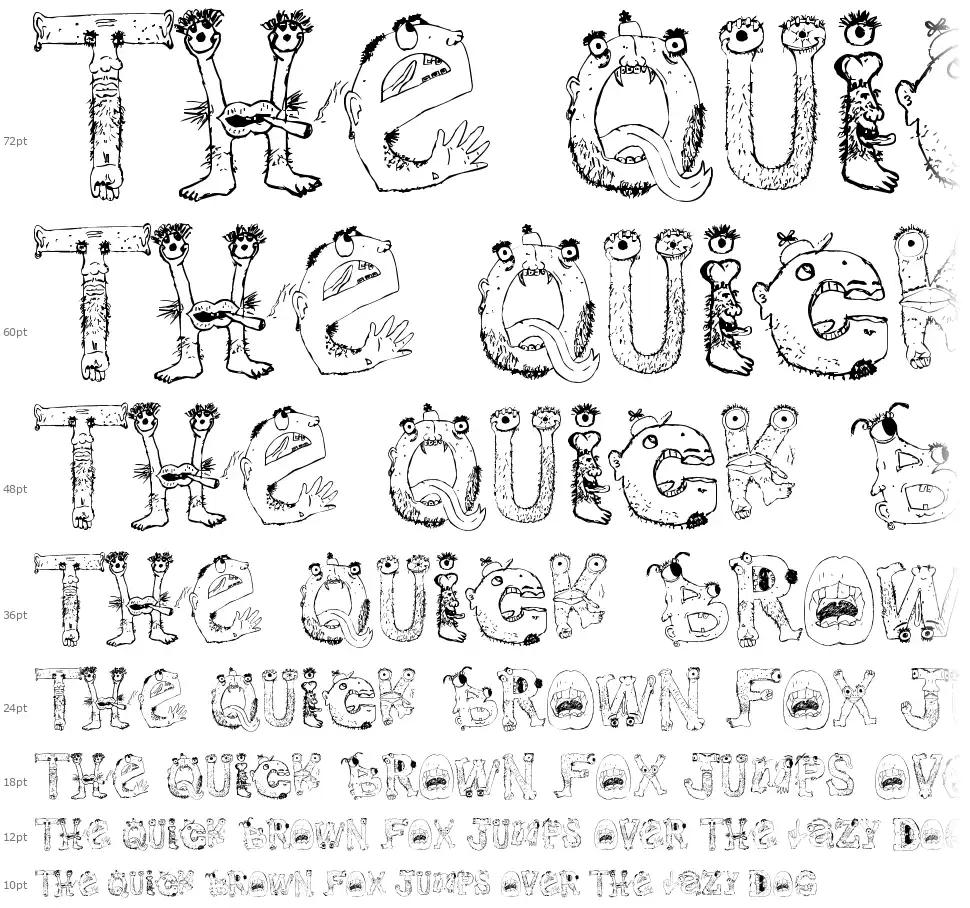 72pt THe QUiC
60pt THe QUiCK
48pt THe QUiCK B
36pt THe QUiCK BROW
24pt THe QUiCK BROWN FOX J
18pt THe QUiCK BROWN FOX JUmPS OVE
12pt THe QUiCK BROWN FOX JUmPS OVeR THe LaZY DOG
10pt THe QUiCK BROWN FOX JUmPS OVeR THe LaZY DOG